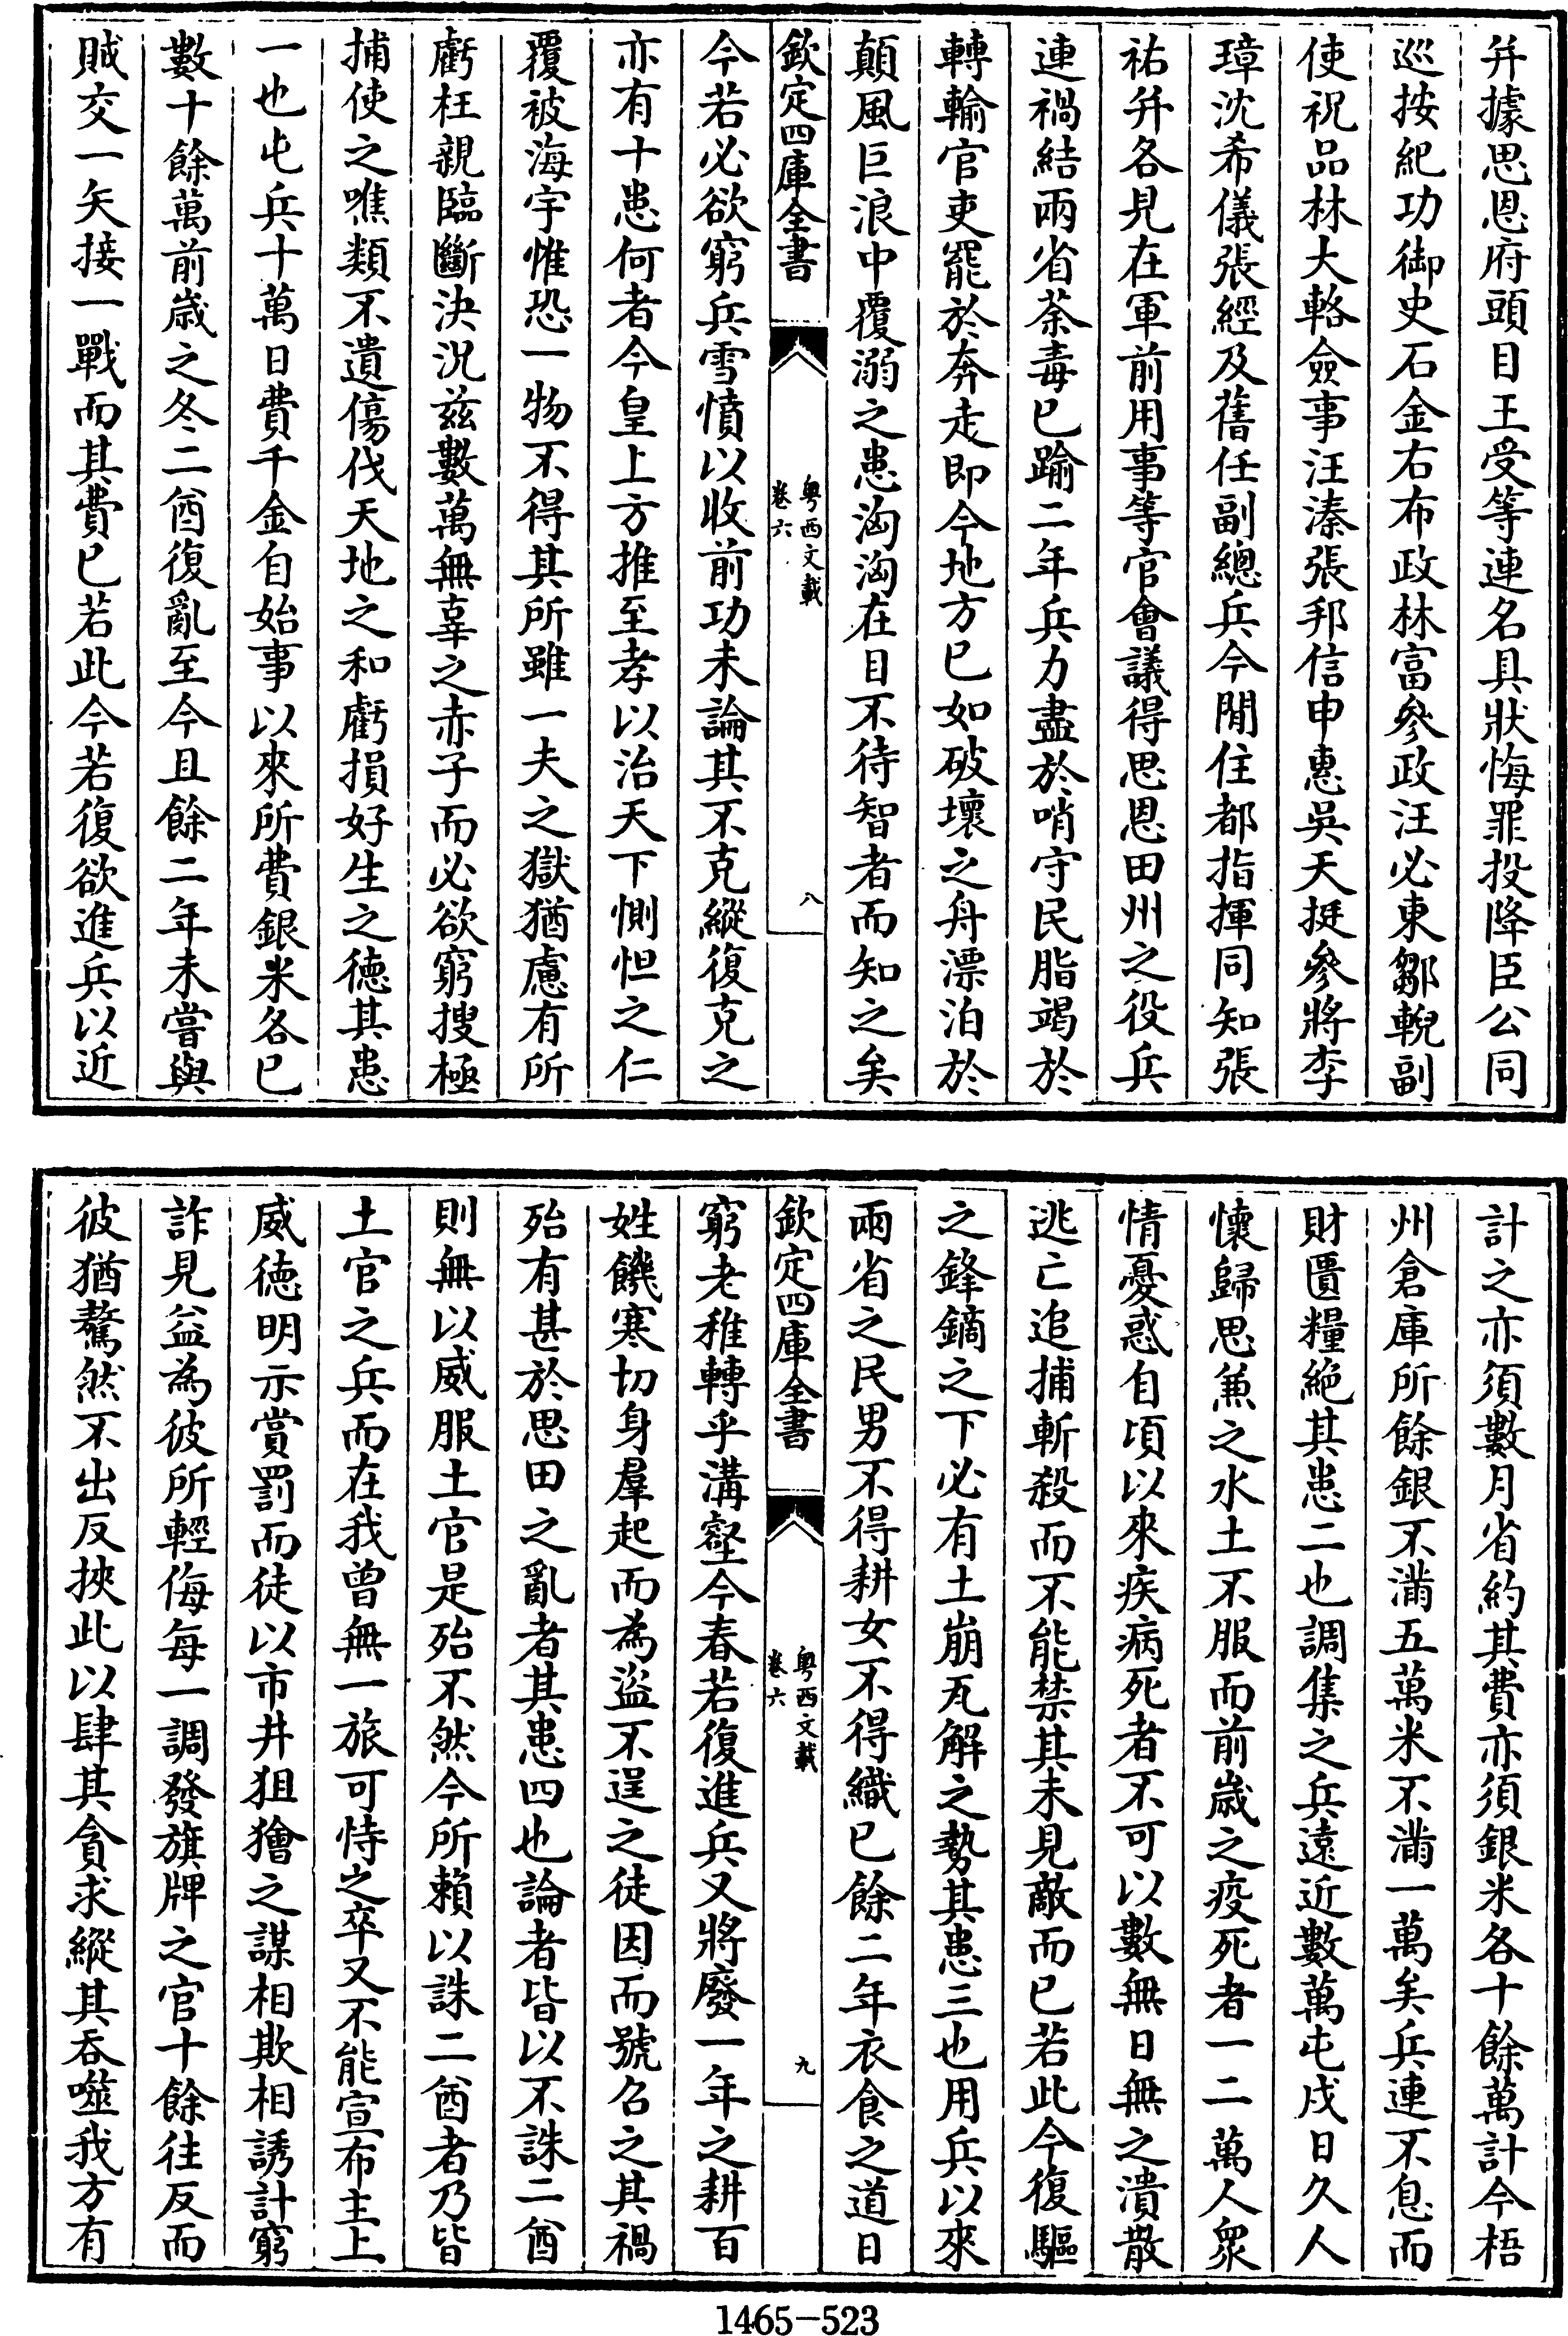 并據思恩府頭目王受等連名具狀悔罪投降臣公同
巡按紀功御史石金右布政林富參政汪必東鄒輗副
使祝品林大輅僉事汪溱張邦信申惠吳天挺參將李
璋沈希儀張經及舊任副總兵今閒住都指揮同知張
祐并各見在軍前用事等官會議得思恩田州之役兵
連禍結兩省荼毒已踰二年兵力盡於哨守民脂竭於
轉輸官吏罷於奔走即今地方已如破壞之舟漂泊於
顛風巨浪中覆溺之患洶洶在目不待智者而知之矣
欽定四庫全書
粤西文載
卷六
八
今若必欲窮兵雪憤以收前功未論其不克縱復克之
亦有十患何者今皇上方推至孝以治天下惻怛之仁
覆被海宇惟恐一物不得其所雖一夫之獄猶慮有所
虧枉親臨斷決況兹數萬無辜之赤子而必欲窮搜極
捕使之噍類不遺傷伐天地之和虧損好生之德其患
一也屯兵十萬日費千金自始事以來所費銀米各已
數十餘萬前歲之冬二酋復亂至今且餘二年未嘗與
賊交一矢接一戰而其費已若此今若復欲進兵以近
計之亦須數月省約其費亦須銀米各十餘萬計今梧
州倉庫所餘銀不滿五萬米不滿一萬矣兵連不息而
財匱糧絶其患二也調集之兵遠近數萬屯戍日久人
懷歸思兼之水土不服而前歲之疫死者一二萬人衆
情憂惑自頃以來疾病死者不可以數無日無之潰散
逃亡追捕斬殺而不能禁其未見敵而已若此今復驅
之鋒鏑之下必有土崩瓦解之勢其患三也用兵以來
兩省之民男不得耕女不得織已餘二年衣食之道日
欽定四庫全書
粤西文載
卷六
九
窮老稚轉乎溝壑今春若復進兵又將廢一年之耕百
姓饑寒切身羣起而為盜不逞之徒因而號召之其禍
殆有甚於思田之亂者其患四也論者皆以不誅二酋
則無以威服土官是殆不然今所賴以誅二酋者乃皆
土官之兵而在我曾無一旅可恃之卒又不能宣布主上
威德明示賞罰而徒以市井狙獪之謀相欺相誘計窮
詐見益為彼所輕侮每一調發旗牌之官十餘往反而
彼猶驁然不出反挾此以肆其貪求縱其吞噬我方有
1465-523